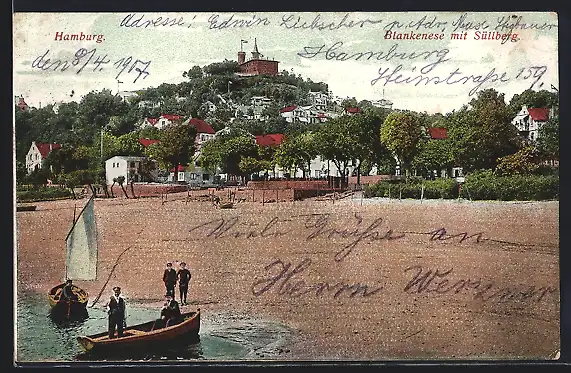 Adresse: Edwin Liebscher p. Adr. Max Hübner
Hamburg.
Blankenese mit Süllberg.
den 8/4 1907
Hamburg
Heinstraße 159.
Viele Grüße an
Herrn Werner